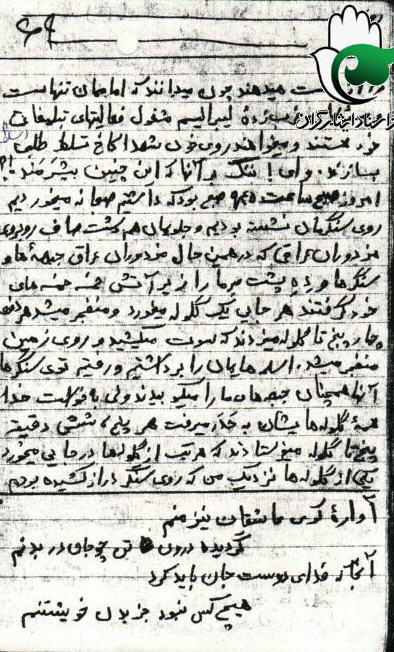 ۶۹
دست میدهند چون میدانند که امامان تنهاست
لیبرالیسم مشغول فعالیتهای تبلیغاتی
خود هستند و میخواهند روی خون شهدا کاخ تسلط طلبی
بسازند. وای! ننگ بر آنها که این چنین بیشرمند!
امروز صبح ساعت صبح بود که داشتیم صبحانه میخوردیم
روی سنگرمان نشسته بودیم و جلویمان هم دشت صاف روبروی
مزدوران عراقی که در همین حال مزدوران عراق جبهه‌ها و
سنگرها و پشت سر ما را زیر آتش خمسه خمسه های
خود گرفتند هر جایی یک گلوله میخورد و منفجر میشد
چهار پنج تا گلوله میزدند که سوت میکشید و روی زمین
منفجر میشد. اسلحه‌هایمان را برداشتیم و رفتیم توی سنگرها
آنها همچنان جبهه‌های ما را میکوبیدند ولی با خواست خدا
همهٔ گلوله‌هایشان به هدر میرفت هر پنج، شش دقیقه
پنج تا گلوله میفرستادند که هر یک از گلوله‌ها در جایی میخورد
یکی از گلوله‌ها نزدیک من که روی سنگر دراز کشیده بودم
آوارهٔ کوی عاشقان نیز منم
گردیده درون تن چو جان در بدنم
آنجا که فدای دوست جان باید کرد
هیچ کس نبود جز بدل خویشتنم